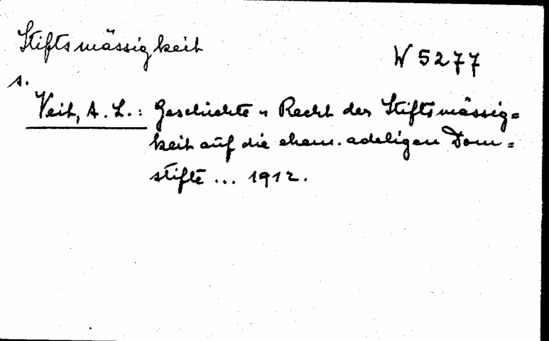 Stiftsmässigkeit
W 5277
s.
Veit, A. L.: Geschichte u Recht der Stiftsmässig=
keit auf die ehem. adeligen Dom=
stifte ... 1912.